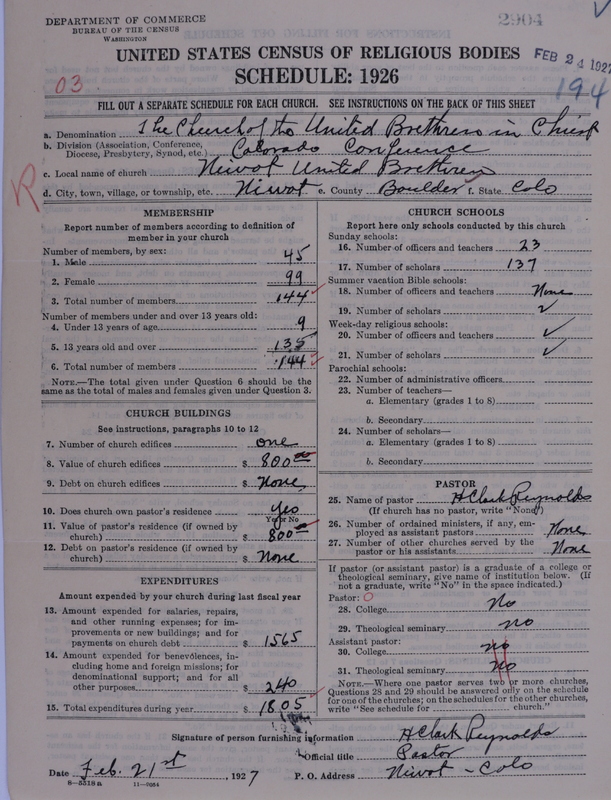 DEPARTMENT OF COMMERCE
BUREAU OF THE CENSUS
WASHINGTON
2904
UNITED STATES CENSUS OF RELIGIOUS BODIES
FEB 24 1927
SCHEDULE: 1926
03
194
FILL OUT A SEPARATE SCHEDULE FOR EACH CHURCH. SEE INSTRUCTIONS ON THE BACK OF THIS SHEET
a. Denomination The Church of the United Brethren in Christ
b. Division (Association, Conference,
Diocese, Presbytery, Synod, etc.) Colorado Conference
c. Local name of church Niwot United Brethren
R
d. City, town, village, or township, etc. Niwot e. County Boulder f. State Colo
MEMBERSHIP
Report number of members according to definition of
member in your church
Number of members, by sex:
1. Male 45
2. Female 99
3. Total number of members 144
Number of members under and over 13 years old:
4. Under 13 years of age 9
5. 13 years old and over 135
6. Total number of members 144
NOTE.—The total given under Question 6 should be the
same as the total of males and females given under Question 3.
CHURCH BUILDINGS
See instructions, paragraphs 10 to 12
7. Number of church edifices one
8. Value of church edifices $ 800
9. Debt on church edifices $ None
10. Does church own pastor's residence? yes
Yes or No
11. Value of pastor's residence (if owned by
church) $ 800
12. Debt on pastor's residence (if owned by
church) $ None
EXPENDITURES
Amount expended by your church during last fiscal year
13. Amount expended for salaries, repairs,
and other running expenses; for im-
provements or new buildings; and for
payments on church debt $ 1565
14. Amount expended for benevolences, in-
cluding home and foreign missions; for
denominational support; and for all
other purposes $ 240
15. Total expenditures during year $ 1805
CHURCH SCHOOLS
Report here only schools conducted by this church
Sunday schools:
16. Number of officers and teachers 23
17. Number of scholars 137
Summer vacation Bible schools:
18. Number of officers and teachers None
19. Number of scholars
Week-day religious schools:
20. Number of officers and teachers
21. Number of scholars
Parochial schools:
22. Number of administrative officers
23. Number of teachers—
a. Elementary (grades 1 to 8)
b. Secondary
24. Number of scholars—
a. Elementary (grades 1 to 8)
b. Secondary
PASTOR
25. Name of pastor H Clark Reynolds
(If church has no pastor, write "None")
26. Number of ordained ministers, if any, em-
ployed as assistant pastors None
27. Number of other churches served by the
pastor or his assistants None
If pastor (or assistant pastor) is a graduate of a college or
theological seminary, give name of institution below. (If
not a graduate, write "No" in the space indicated.)
Pastor: 0
28. College No
29. Theological seminary no
Assistant pastor:
30. College no
31. Theological seminary no
NOTE.—Where one pastor serves two or more churches,
Questions 28 and 29 should be answered only on the schedule
for one of the churches; on the schedules for the other churches,
write "See schedule for church."
Signature of person furnishing information H Clark Reynolds
Official title Pastor
Date Feb. 21st, 1927 P. O. Address Niwot - Colo
8—5518a 11—9064